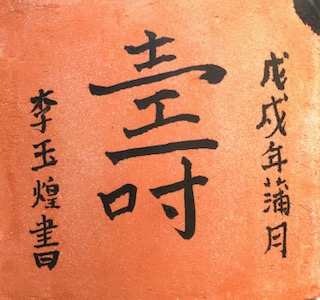 戊戌年蒲月
壽
李玉煌書